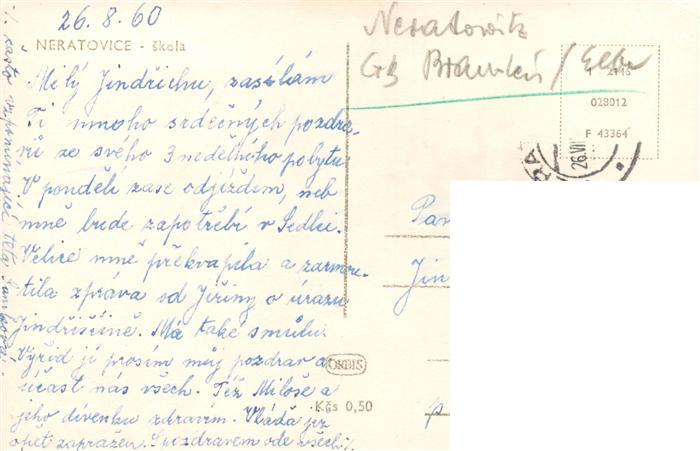 26.8.60
NERATOVICE - škola
Milý Jindřichu, zasílám
Ti mnoho srdečných pozdra-
vů ze svého 3nedělního pobytu
V pondělí zase odjíždím, neb
mně bude zapotřebí v Sedlci.
Velice mně překvapila a zarmou-
tila zpráva od Jiřiny o úrazu
Jindřiščině. Má také smůlu.
Vyřiď jí prosím můj pozdrav a
účast nás všech. Též Miloše a
jeho dívenku zdravím. Vláďa je
opět zapražen. S pozdravem ode všech
často vzpomínající teta
Neratowitz
GB / Elbe
1 2146
028012
F 43364
26.VII
Pan
Jin
ORBIS
Kčs 0,50
p